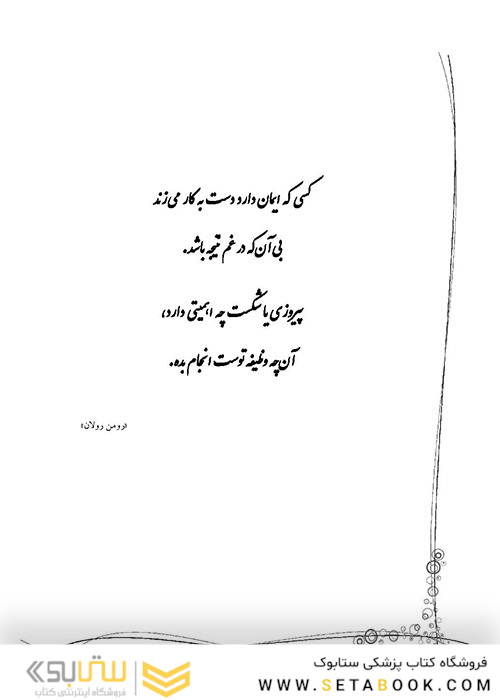 کسی که ایمان دارد دست به کار می‌زند
بی‌آن‌که در غم نتیجه باشد.
پیروزی یا شکست چه اهمیتی دارد،
آن‌چه وظیفه توست انجام بده.
«رومن رولان»
فروشگاه کتاب پزشکی ستابوک
WWW.SETABOOK.COM
ستابوک
فروشگاه اینترنتی کتاب